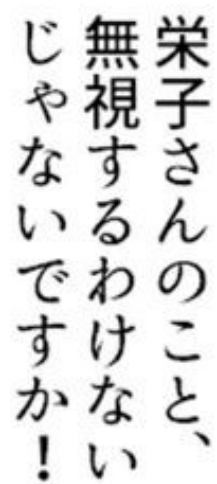 栄子さんのこと、
無視するわけない
じゃないですか！